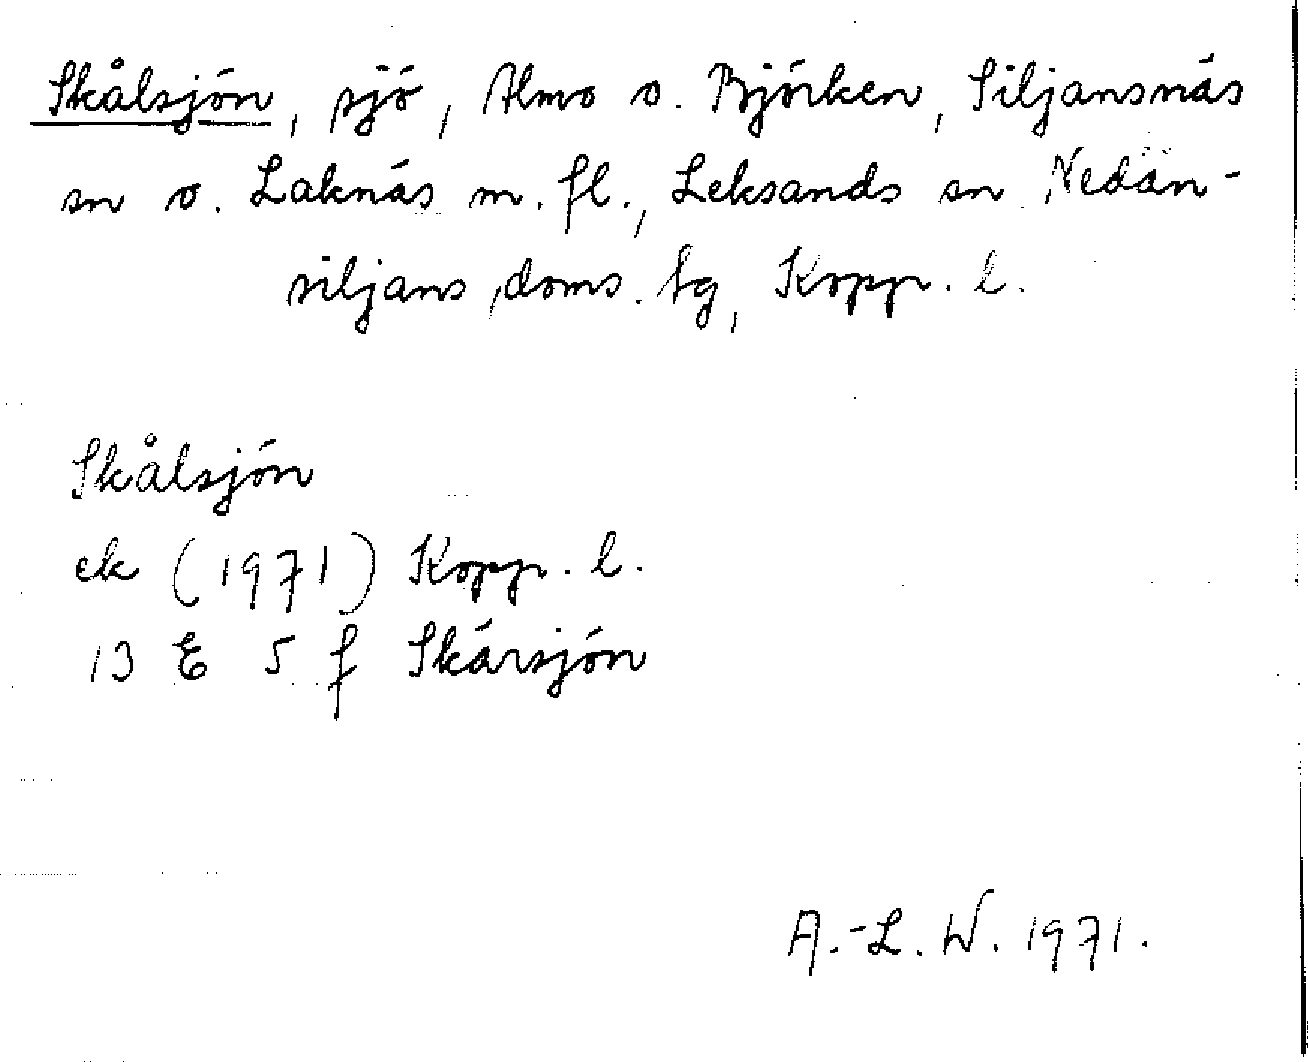 Skålsjön, sjö, Almo o. Björken, Siljansnäs
sn o. Laknäs m. fl., Leksands sn Nedan-
siljans doms. tg, Kopp. l.
Skålsjön
ek (1971) Kopp. l.
13 E 5 f Skärsjön
A.-L. W. 1971.